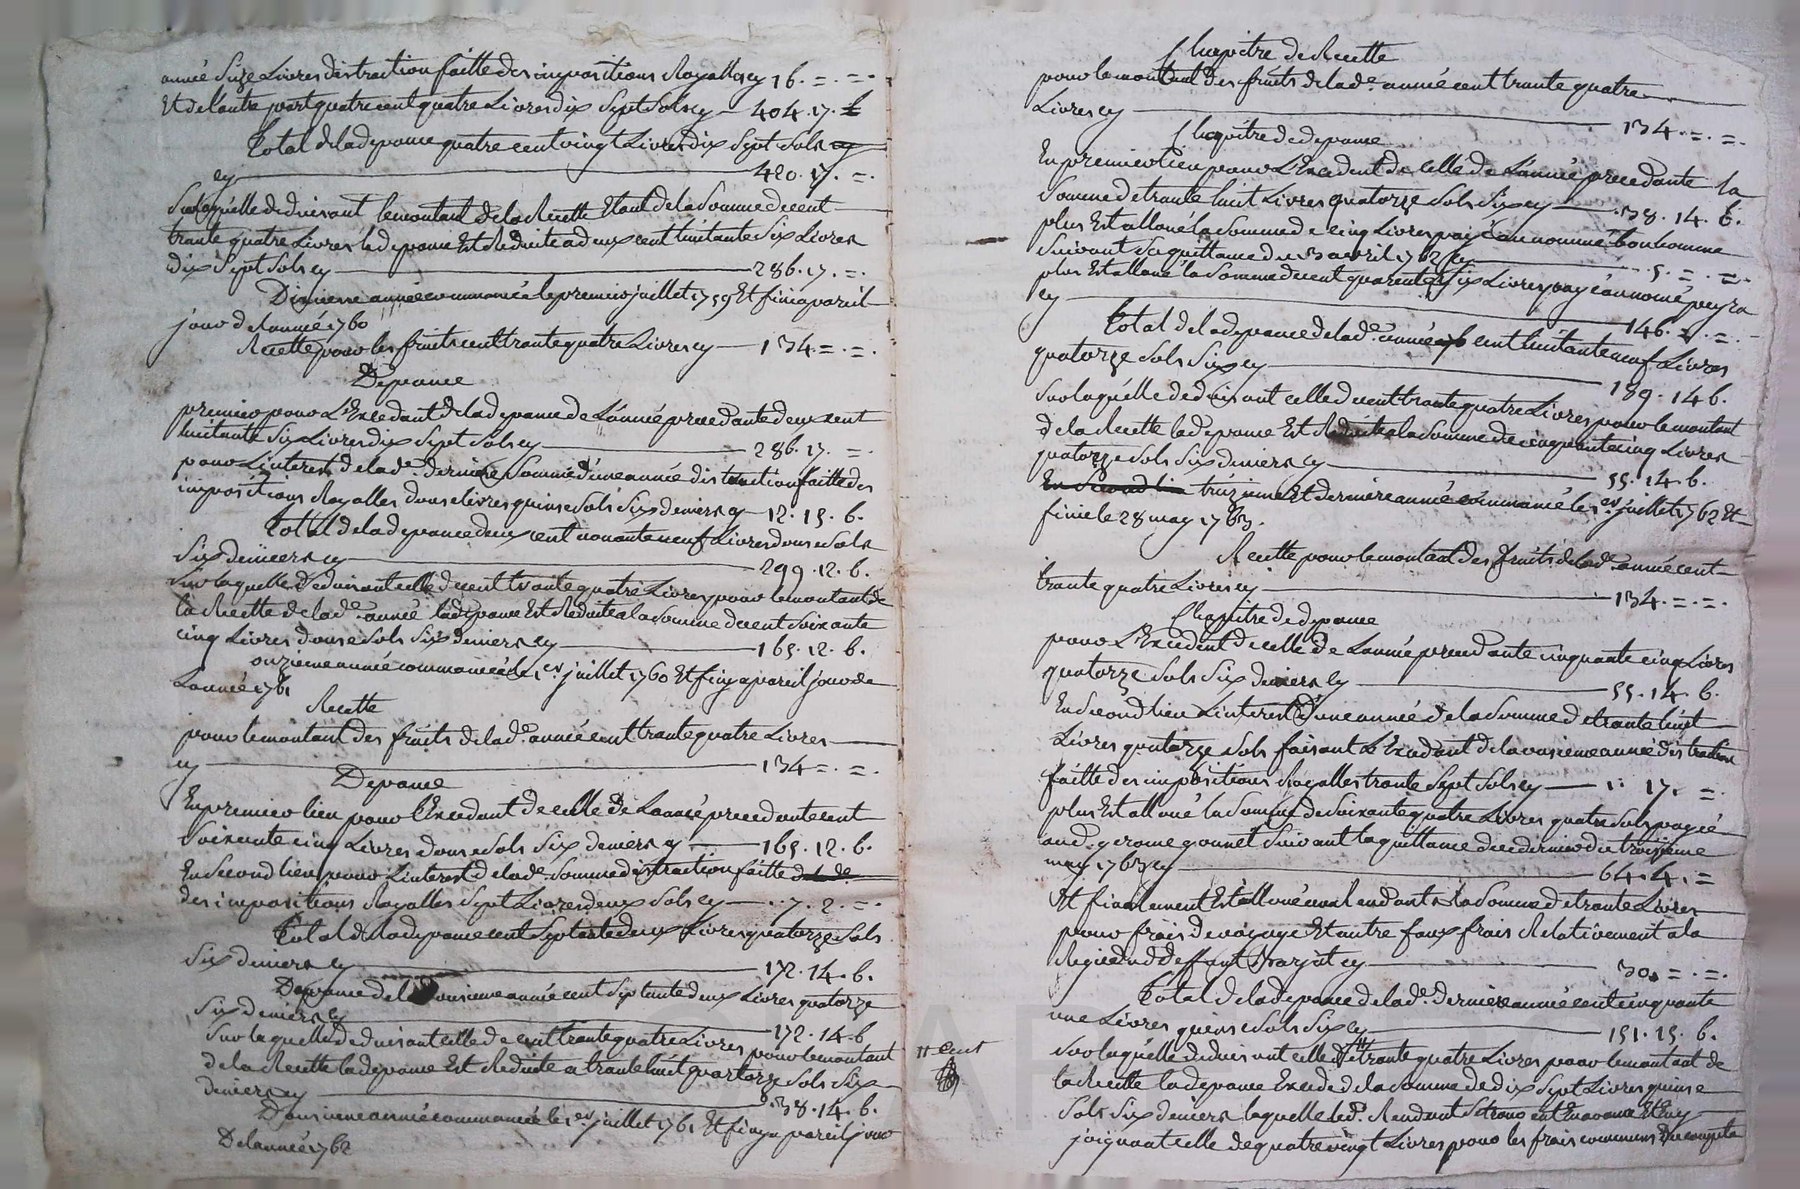 année Sieze Livres distraction faitte des impositions Royalles cy 16. = . = .
Et de lautre part quatre cent quatre Livres dix Sept Sols cy 404 . 17 .
Total de la depance quatre cent vingt Livres dix Sept Sols
cy 420 . 17 . = .
Sur laquelle deduisant le montant de la Recette Etant de la Somme de cent
trante quatre Livres la depance Est Reduite a deux cent huitante Six Livres
dix Sept Sols cy 286 . 17 . = .
Dixieme année commancée le premier juillet 1759 Et finie a pareil
jour de l'année 1760
Recette pour les fruits cent trante quatre Livres cy 134 = . = .
Depance
premier pour L'Excedant de la depance de L'année precedante deux cent
huitante Six Livres dix Sept Sols cy 286 . 17 . = .
pour L'interest de lad.e derniere Somme d'une année distraction faitte des
impositions Royalles douse livres quinse Sols Six deniers cy 12 . 15 . 6 .
Total de la depance deux cent nonante neuf Livres douse Sols
Six deniers cy 299 . 12 . 6 .
Sur laquelle deduisant celle de cent trante quatre Livres pour le montant de
la Recette de lad.e année la depance Est Reduite a la Somme de cent Soixante
cinq Livres douse Sols Six deniers cy 165 . 12 . 6 .
onzieme année commancée le 1.er juillet 1760 Et finy a pareil jour de
L'année 1761
Recette
pour le montant des fruits de lad.e année cent trante quatre Livres
cy 134 = . = .
Depance
En premier lieu pour l'Excedant de celle de L'année precedante cent
Soixante cinq Livres douse Sols Six deniers cy 165 . 12 . 6 .
En Second lieu pour L'interest de lad.e Somme distraction faitte de lad.e
des impositions Royalles Sept Livres deux Sols cy 7 . 2 . = .
Total de la depance cent Septante deux Livres quatorze Sols
Six deniers cy 172 . 14 . 6 .
Depance de la onzieme année cent Septante deux Livres quatorze
Six deniers cy 172 . 14 . 6
Sur laquelle deduisant celle de cent trante quatre Livres pour le montant
de la Recette la depance Est Reduite a trante huit quatorze Sols Six
deniers cy 38 . 14 . 6 .
Dousieme année commancée le 1.er juillet 1761 Et finy a pareil jour
De l'année 1762
Chapitre de Recette
pour le montant des fruits de lad.e année cent trante quatre
Livres cy 134 . = . = .
Chapitre de depance
En premier lieu pour L'Excedent de celle de L'année precedante la
Somme de trante huit Livres quatorze Sols Six cy 38 . 14 . 6 .
plus Est alloué la Somme de cinq Livres payé au nommé bonhomme
Suivant Sa quittance du 3 avril 1762 cy 5 . = . = .
plus Est alloué la Somme de cent quarente Six Livres payé au nomé peyra
cy 146 . = . = .
Total de la depance de lad.e année cent huitante neuf Livres
quatorze Sols Six cy 189 . 14 6 .
Sur laquelle deduisant celle de cent trante quatre Livres pour le montant
de la Recette la depance Est Reduite a la Somme de cinquante cinq Livres
quatorze Sols Six deniers cy 55 . 14 . 6 .
En Second lieu treizieme Et derniere année commancée le 1.er juillet 1762 Et
finie le 28 may 1763 .
Recette pour le montant des fruits de lad.e année cent
trante quatre Livres cy 134 . = . = .
Chapitre de depance
pour L'Excedent de celle de L'année precedante cinquante cinq Livres
quatorze Sols Six deniers cy 55 . 14 . 6 .
En Second lieu L'interest d'une année de la Somme de trante huit
Livres quatorze Sols faisant L'Excedant de la onzieme année distraction
faitte des impositions Royalles trante Sept Sols cy 1 . 17 . =
plus Est alloué la Somme de Soixante quatre Livres quatre Sols payée
au d. gerome gounet Suivant la quittance de ce dernier du troisieme
may 1763 cy 64 . 4 . =
Et finalement Est alloué au Rendant la Somme de trante Livres
pour frais de voyage Et autre faux frais Relativement a la
Regie dud deffunt cy 30 . = . = .
Total de la depance de lad.e derniere année cent cinquante
une Livres quinse Sols Six cy 151 . 15 . 6 .
Sur laquelle deduisant celle de trante quatre Livres pour le montant de
la Recette la depance Excede de la Somme de dix Sept Livres quinse
Sols Six deniers laquelle led. Rendant Setrouve en avance Et en y
joignant celle de quatre vingt Livres pour les frais communs du compte
cent